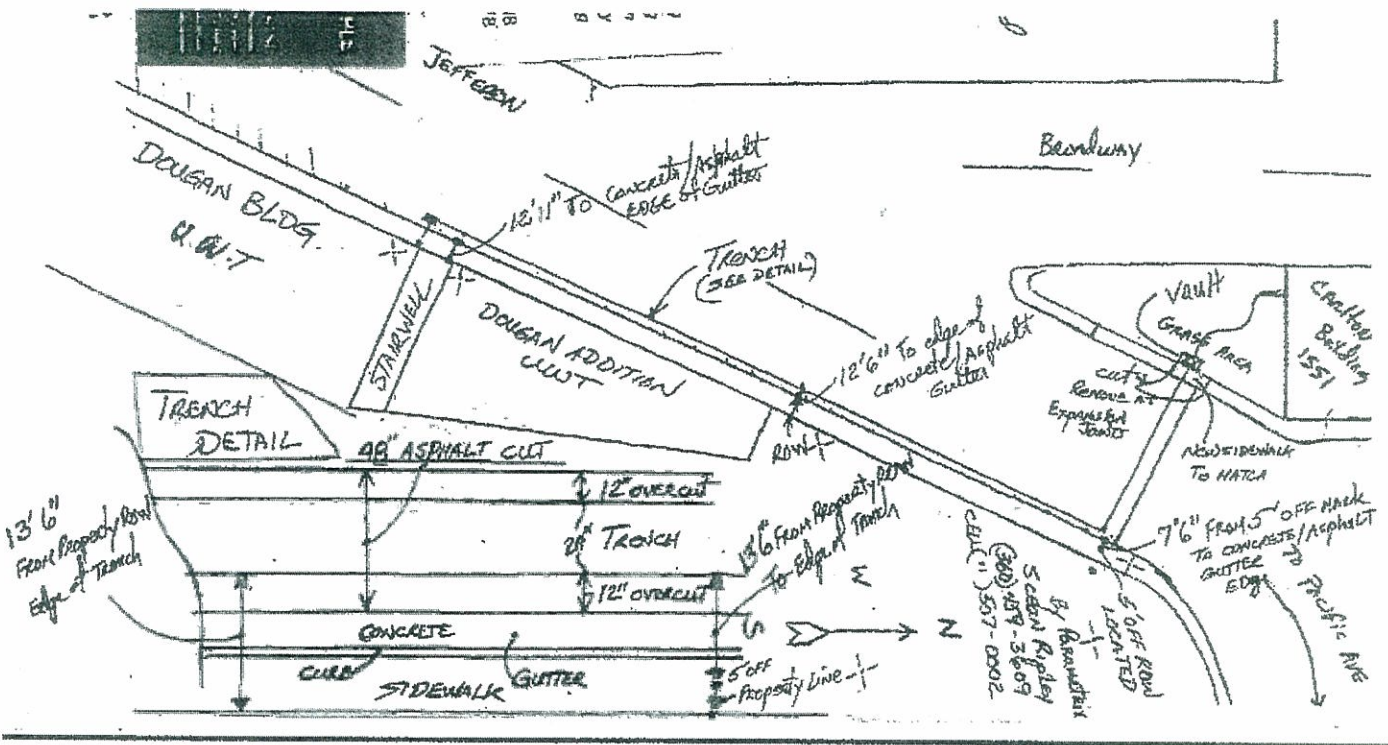 JEFFERSON
Broadway
DOUGAN BLDG.
U.W.T
12'11" TO Concrete/Asphalt
EDGE of Gutter
TRENCH
(SEE DETAIL)
STAIRWELL
DOUGAN ADDITION
UWT
12'6" To edge of
Concrete/Asphalt
Gutter
ROW
Vault
GRASS AREA
CARLTON
Building
1551
CUT &
Remove AT
Expansion
Joints
NEW SIDEWALK
TO MATCH
7'6" FROM 5' OFF MARK
TO CONCRETE/ASPHALT
GUTTER
Edge
TO PACIFIC AVE
5' OFF ROW
LOCATED
By Parametrix
(360) 459-3609
CELL (") 507-0002
TRENCH
DETAIL
48" ASPHALT CUT
12" OVERCUT
24" TRENCH
12" OVERCUT
13'6"
From Property/ROW
Edge of Trench
13'6" From Property/ROW
To Edge of Trench
CONCRETE
CURB
GUTTER
SIDEWALK
5' OFF
Property Line
W
S
N